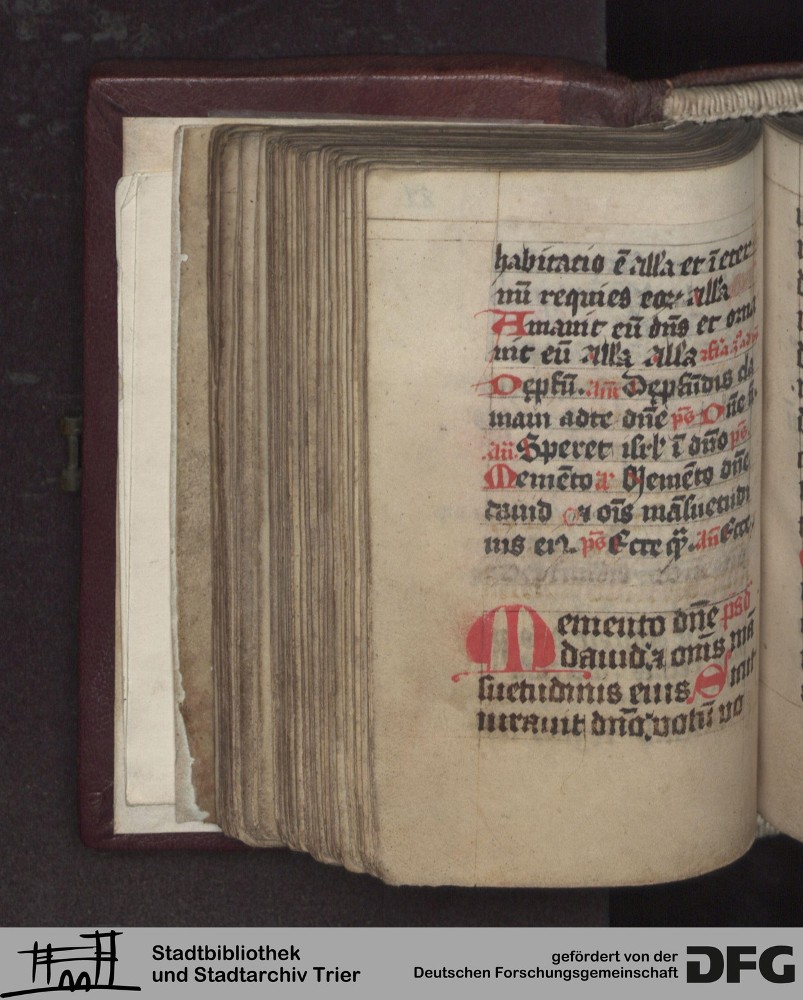 habitatio ē all'a et īeter
nū requies eoꝝ all'a
Amauit eū dn̄s et orna
uit eū all'a all'a
Dep̱fū. an̄ Dep̱fūdis cla
maui adte dn̄e ps̄ Dn̄e
.an̄. Speret isrl' ī dn̄o ps̄
Memēto Memēto dn̄e
dauid ⁊ oīs māsuetudi
nis ei⁹. ps̄ Ecce q̄ .an̄ Ecce
Memento dn̄e psꝰ
dauid ⁊ om̄s mā
suetudinis eius Sicut
iurauit dn̄o: uotū uo
Stadtbibliothek
und Stadtarchiv Trier
gefördert von der
Deutschen Forschungsgemeinschaft
DFG